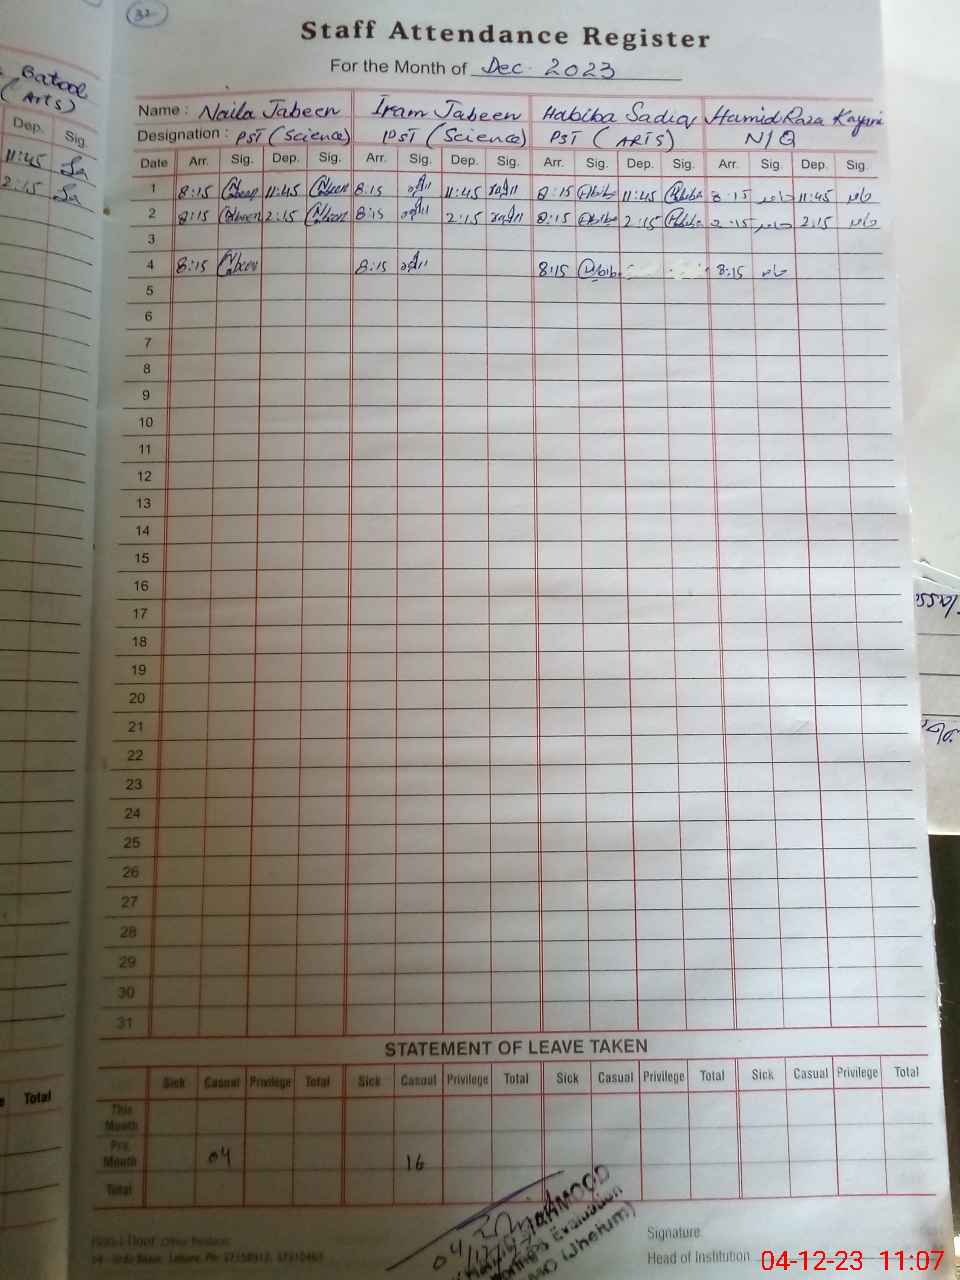 32
Staff Attendance Register
For the Month of Dec. 2023
Batool
(Arts)
Dep. Sig.
11:45
2:15
Name : Naila Jabeen Iram Jabeen Habiba Sadiq Hamid Raza Kayani
Designation : PST (Science) PST (Science) PST (ARTS) N/Q
Date Arr. Sig. Dep. Sig. Arr. Sig. Dep. Sig. Arr. Sig. Dep. Sig. Arr. Sig. Dep. Sig.
1 8:15 11:45 8:15 11:45 8:15 11:45 8:15 11:45
2 8:15 2:15 8:15 2:15 8:15 2:15 8:15 2:15
3
4 8:15 8:15 8:15 8:15
5
6
7
8
9
10
11
12
13
14
15
16
17
18
19
20
21
22
23
24
25
26
27
28
29
30
31
STATEMENT OF LEAVE TAKEN
Sick Casual Privilege Total Sick Casual Privilege Total Sick Casual Privilege Total Sick Casual Privilege Total
Total
This Month
Pre. Month 04 16
Total
Signature
Head of Institution
04-12-23 11:07